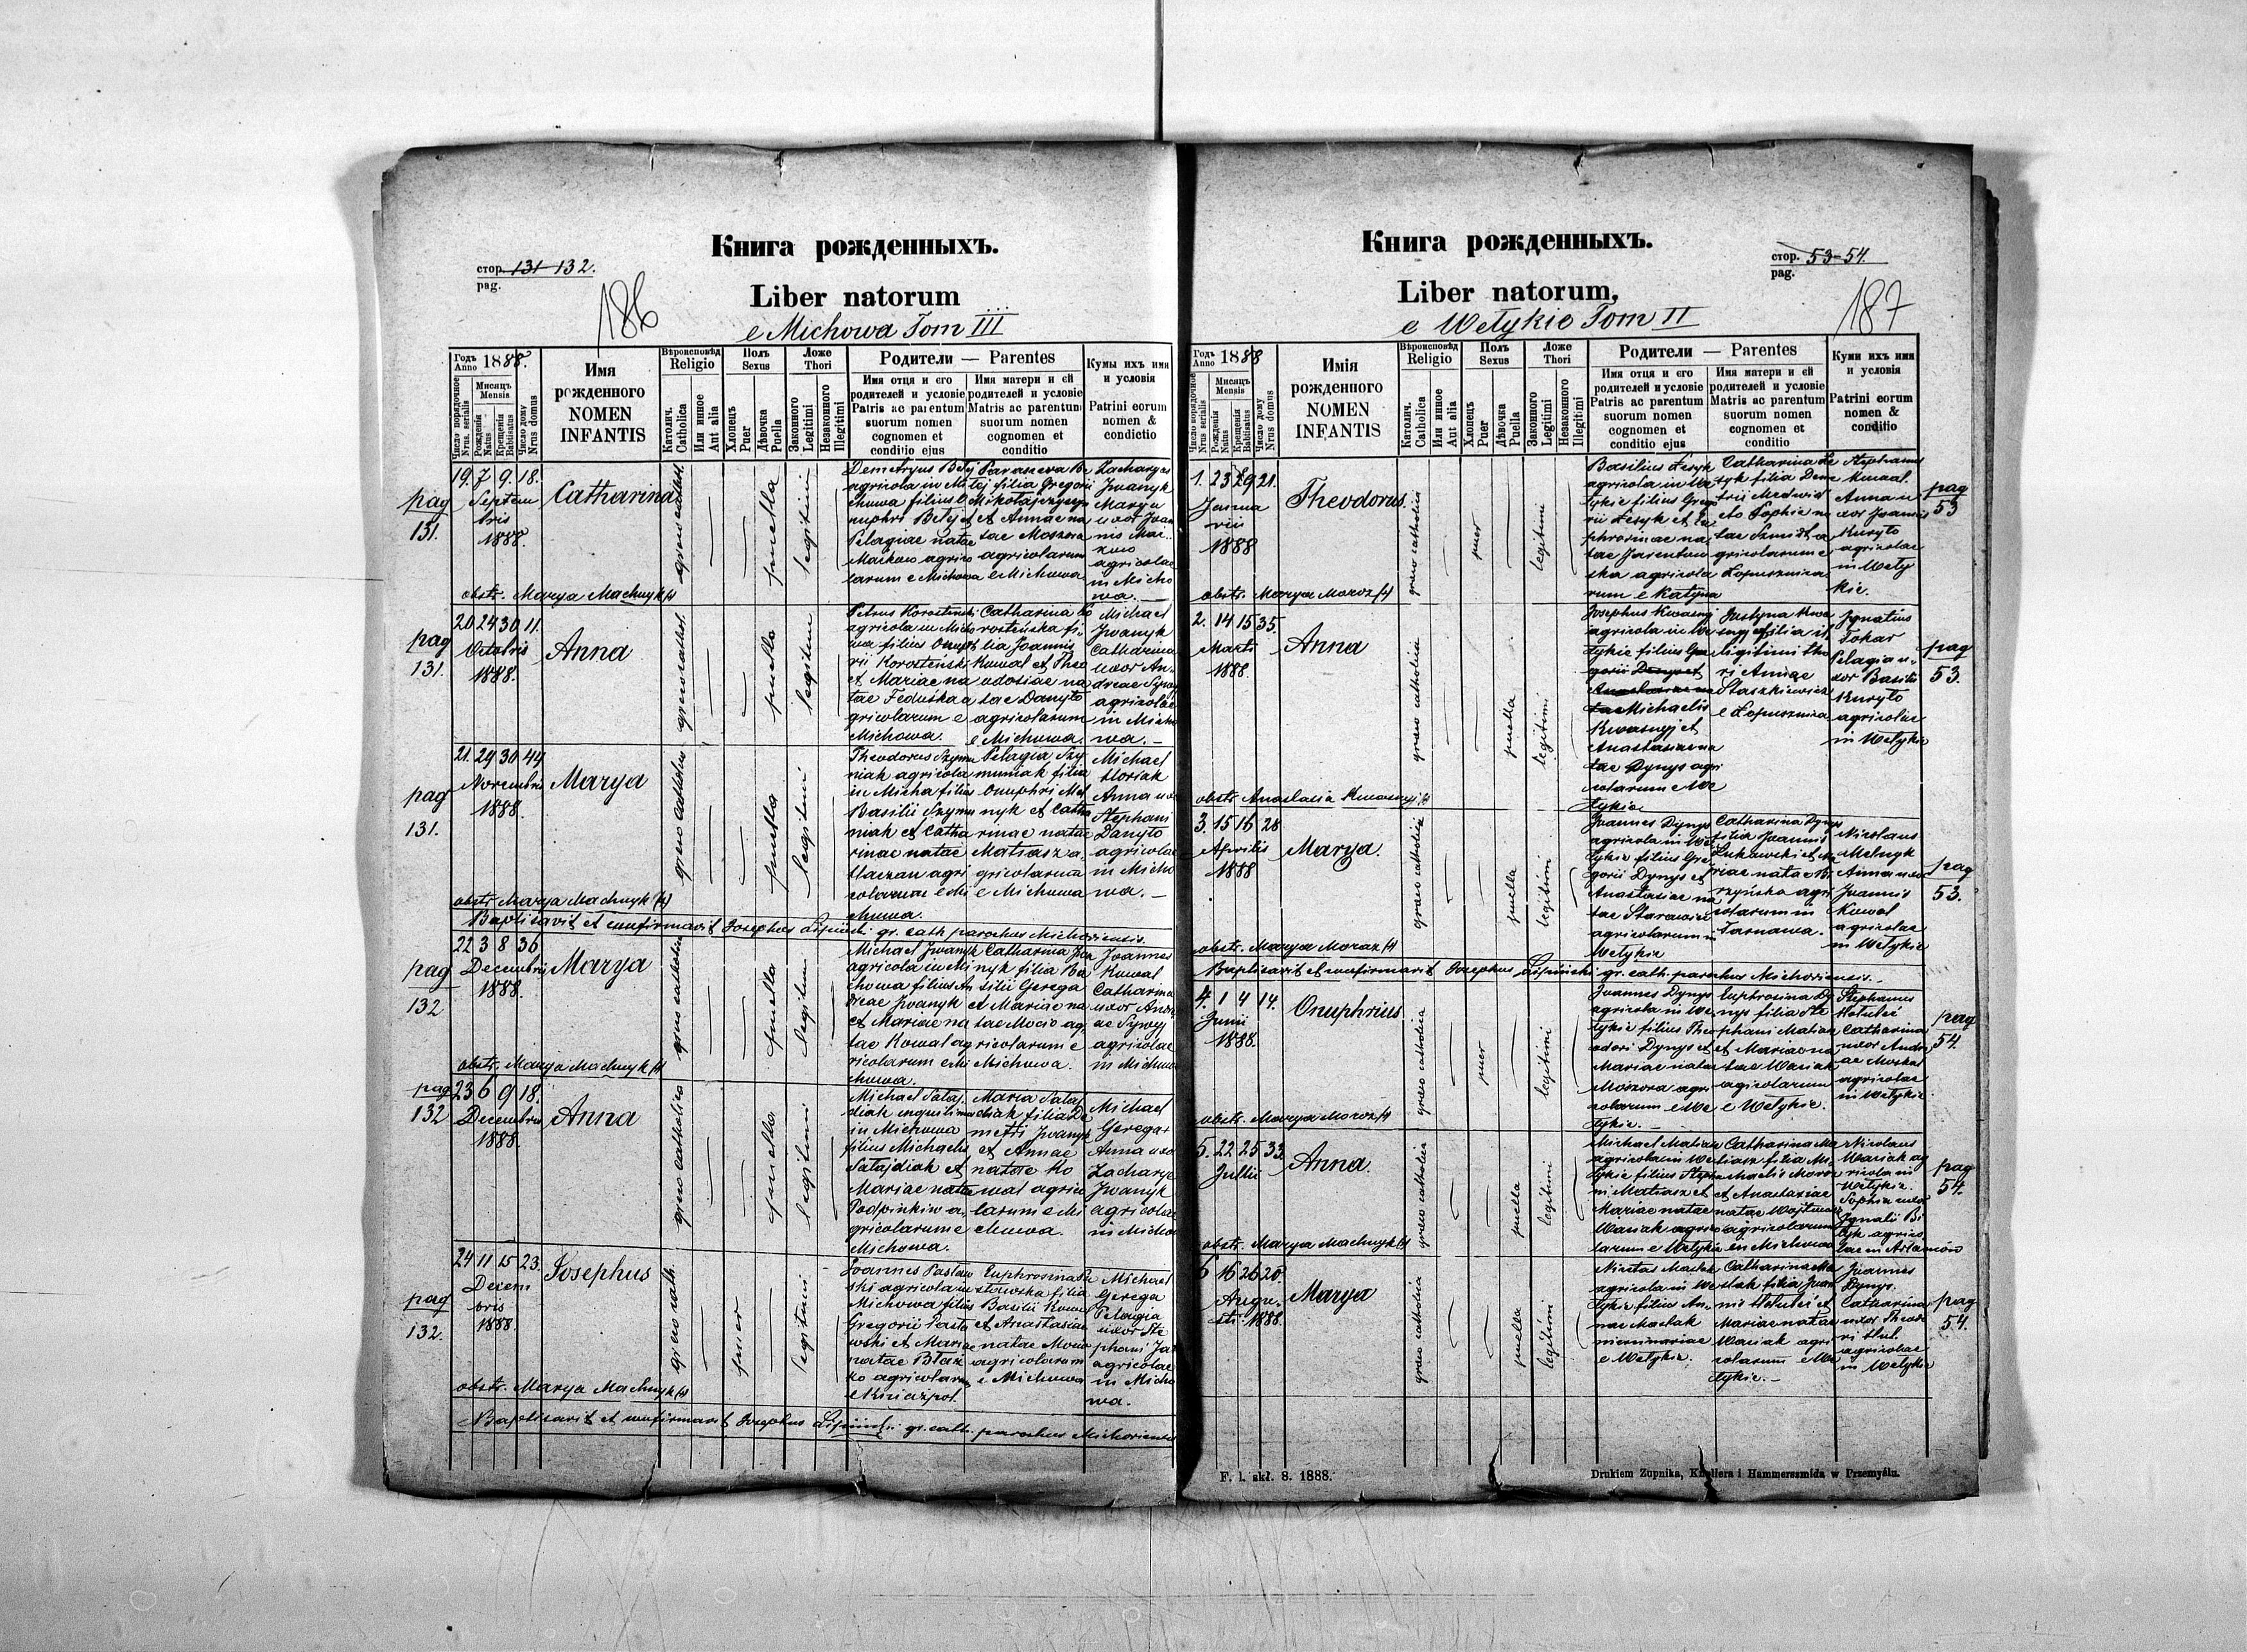 Книга рожденныхъ.
стор. 131-132.
pag.
186
Liber natorum
e Michowa Tom III
Годъ Anno 1888.
Число порядочное Nrus. serialis
Мисяцъ Mensis
Рожденія Natus
Крещенія Babtisatus
Число дому Nrus domus
Имя рожденного NOMEN INFANTIS
Вѣроисповѣд Religio
Католич. Catholica
Или инное Aut alia
Полъ Sexus
Хлопецъ Puer
Дѣвочка Puella
Ложе Thori
Законного Legitimi
Незаконного Illegitimi
Родители — Parentes
Имя отця и его
родителей и условіе
Patris ac parentum
suorum nomen
cognomen et
conditio ejus
Имя матери и єй
родителей и условіе
Matris ac parentum
suorum nomen
cognomen et
conditio
Кумы ихъ имя
и условія
Patrini eorum
nomen &
condictio
pag 131.
19. 7 9. 18.
Septem
bris
1888.
Catharina
greco cathol.
puella
legitimi
Demetryus Betej
agricola in Mi
chowa filius O
nuphri Betej et
Pelagiae natae
Maikow agrico
larum e Michowa
Parascewa Be
tej filia Gregorii
Mikołajczyszyn
et Annae na
tae Moszora
agricolarum
e Michowa
Zacharyas
Iwanyk
Marya
uxor Joan
nis Mai
kow
agricolae
in Micho
wa. —
obstr. Marya Machnyk
pag 131.
20 24 30 11.
Octobris
1888.
Anna
greco cathol.
puella
legitimi
Petrus Korostenski
agricola in Micho
wa filius Onuph
rii Korosteński
et Mariae na
tae Feduska a
gricolarum e
Michowa.
Catharina Ko
rosteńska fi
lia Joannis
Kowal et Theo
odosiae na
tae Danyto
agricolarum
e Michowa.
Michael
Iwanyk
Catharina
uxor An
dreae Sywyj
agricolae
in Micho
wa. —
pag 131.
21. 29 30 44
Novembris
1888.
Marya
greco catholica
puella
legitimi
Theodorus Szymu
niak agricola
in Micha filius
Basilii Szymu
niak et Catha
rinae natae
Haczan agri
colarum e Mi
chowa.
Pelagia Szy
muniak filia
Onuphri Mel
nyk et Catha
rinae natae
Matiasz a
gricolarum
e Michowa
Michael
Horiak
Anna uxor
Stephani
Danyto
agricolae
in Micho
wa. —
obstr. Marya Machnyk
Baptisavit et confirmavit Josephus Lipiński gr. cath. parochus Michoviensis.
pag 132
22 3 8 36
Decembris
1888.
Marya
greco catholica
puella
legitimi
Michael Iwanyk
agricola in Mi
chowa filius An
dreae Iwanyk
et Mariae na
tae Kowal ag
ricolarum e Mi
chowa.
Catharina Iwa
nyk filia Ba
silii Gerega
et Mariae na
tae Mocio ag
ricolarum e
Michowa.
Joannes
Kowal
Catharina
uxor Andre
ae Sywyj
agricolae
in Michowa
obstr. Marya Machnyk
pag 132
23 6 9 18.
Decembris
1888.
Anna
greco catholica
puella
legitimi
Michael Sataj
diak inquilinus
in Michowa
filius Michaelis
Satajdiak et
Mariae natae
Podpinkiw a
gricolarum e
Michowa.
Maria Sataj
diak filia De
metri Iwanyk
et Annae
natae Ko
wal agrico
larum e Mi
chowa.
Michael
Gerega
Anna uxor
Zacharye
Iwanyk
agricolae
in Michow
pag 132.
24 11 15 23.
Decem
bris
1888.
Josephus
greco cath.
puer
legitimi
Joannes Pastaw
ski agricola in
Michowa filius
Gregorii Pasta
wski et Mariae
natae Błaz
ko agricolarum
e Kniazpol.
Euphrosina Pa
stowska filia
Basilii Kowal
et Anastasiae
natae Mocio
agricolarum
e Michowa
Michael
Gerega
Pelagia
uxor Ste
phani
agricolae
in Micho
wa.
obstr. Marya Machnyk
Baptisavit et confirmavit Josephus Lipiński gr. cath. parochus Michoviensis
Книга рожденныхъ.
стор. 53-54.
pag.
187
Liber natorum,
e Wetykie Tom II
Годъ Anno 1888
Число порядочное Nrus serialis
Мисяцъ Mensis
Рожденія Natus
Крещенія Babtisatus
Число дому Nrus domus
Имія рожденного NOMEN INFANTIS
Вѣроисповѣд Religio
Католич. Catholica
Или инное Aut alia
Полъ Sexus
Хлопецъ Puer
Дѣвочка Puella
Ложе Thori
Законного Legitimi
Незаконного Illegitimi
Родители — Parentes
Имя отця и его
родителей и условіе
Patris ac parentum
suorum nomen
cognomen et
conditio ejus
Имя матери и єй
родителей и условіе
Matris ac parentum
suorum nomen
cognomen et
conditio
Куми ихъ имя
и условія
Patrini eorum
nomen &
conditio
1. 23 29 21.
Janua
rii
1888
Theodorus.
greco catholica
puer
legitimi
Basilius Lesyk
agricola in We
tykie filius Grego
rii Lesyk et Eu
phrosinae na
tae
agricola
rum e Katyna
Catharina Le
syk filia Deme
trii Medwid
et Sophie na
tae Szmidt a
gricolarum e
Lopusznica
Stephanus
Kowal.
Anna u
xor Joannis
Kuryto
agricolae
in Wety
kie.
pag 53
obstr. Marya Moroz
2. 14 15 35.
Marti
1888.
Anna
greco catholica
puella
legitimi
Josephus Kwasnyj
agricola in We
tykie filius Gre
gorii Dynys et
Anastasiae na
tae Michaelis
Kwasnyj et
Anastasiae na
tae Dynys agri
colarum e We
tykie
Justyna Kwa
snyj filia il
legitimi tho
ri Annae
Staszkiewicz
e Lopusznica
Ignatius
Tokar
Pelagia u
xor Basilii
Kuryto
agricolae
in Wetykie
pag 53.
obstr. Anastasia Kwasnyj
3. 15 16 28
Aprilis
1888
Marya.
greco catholica
puella
legitimi
Joannes Dynys
agricola in We
tykie filius Gre
gorii Dynys et
Anastasiae na
tae
agricolarum in
Wetykie
Catharina Dynys
filia Joannis
Lukawecki et Ma
riae natae
agri
colarum in
Tarnawa.
Nicolaus
Melnyk
Anna uxor
Joannis
Kowal
agricolae
in Wetykie
pag 53.
obstr. Marya Moroz
Baptisavit et confirmavit Josephus Lipiński gr. cath. parochus Michoviensis. —
4. 1 4 14.
Junii
1888.
Onuphrius
greco catholica
puer
legitimi
Joannes Dynys
agricola in We
tykie filius The
odori Dynys et
Mariae natae
Moszora agri
colarum e We
tykie. —
Euphrosina Dy
nys filia Ste
phani Matiasz
et Mariae na
tae Wasiak
agricolarum
e Wetykie.
Stephanus
Hotubei
Catharina
uxor Andre
ae Moskal
agricolae
in Wetykie
pag 54.
obstr. Marya Moroz
5. 22 25 33.
Julii
Anna.
greco catholica
puella
legitimi
Michael Matiasz
agricola in We
tykie filius Stepha
ni Matiasz et
Mariae natae
Wasiak agrico
larum e Wetykie
Catharina Ma
tiasz filia Mi
chaelis Moroz
et Anastasiae
natae
agricolarum
in Michowa
Nicolaus
Wasiak ag
ricola in
Wetykie.
Sophia uxor
Ignatii Bi
tyk agrico
lae in Arłamów
pag 54.
obstr. Marya Machnyk
6 16 26 20.
Augu
sti 1888.
Marya
greco catholica
puella
legitimi
Nicetas Mastak
agricola in We
tykie filius An
nae Mastak
e Wetykie.
Catharina Ma
stak filia Joan
nis Hotubei et
Mariae natae
Wasiak agri
colarum e We
tykie. —
Joannes
Dynys.
Catharina
uxor Theodo
ri Hul.
agricolae
in Wetykie
pag 54.
F. l. skł. 8. 1888.
Drukiem Żupnika, Knollera i Hammerszmida w Przemyślu.